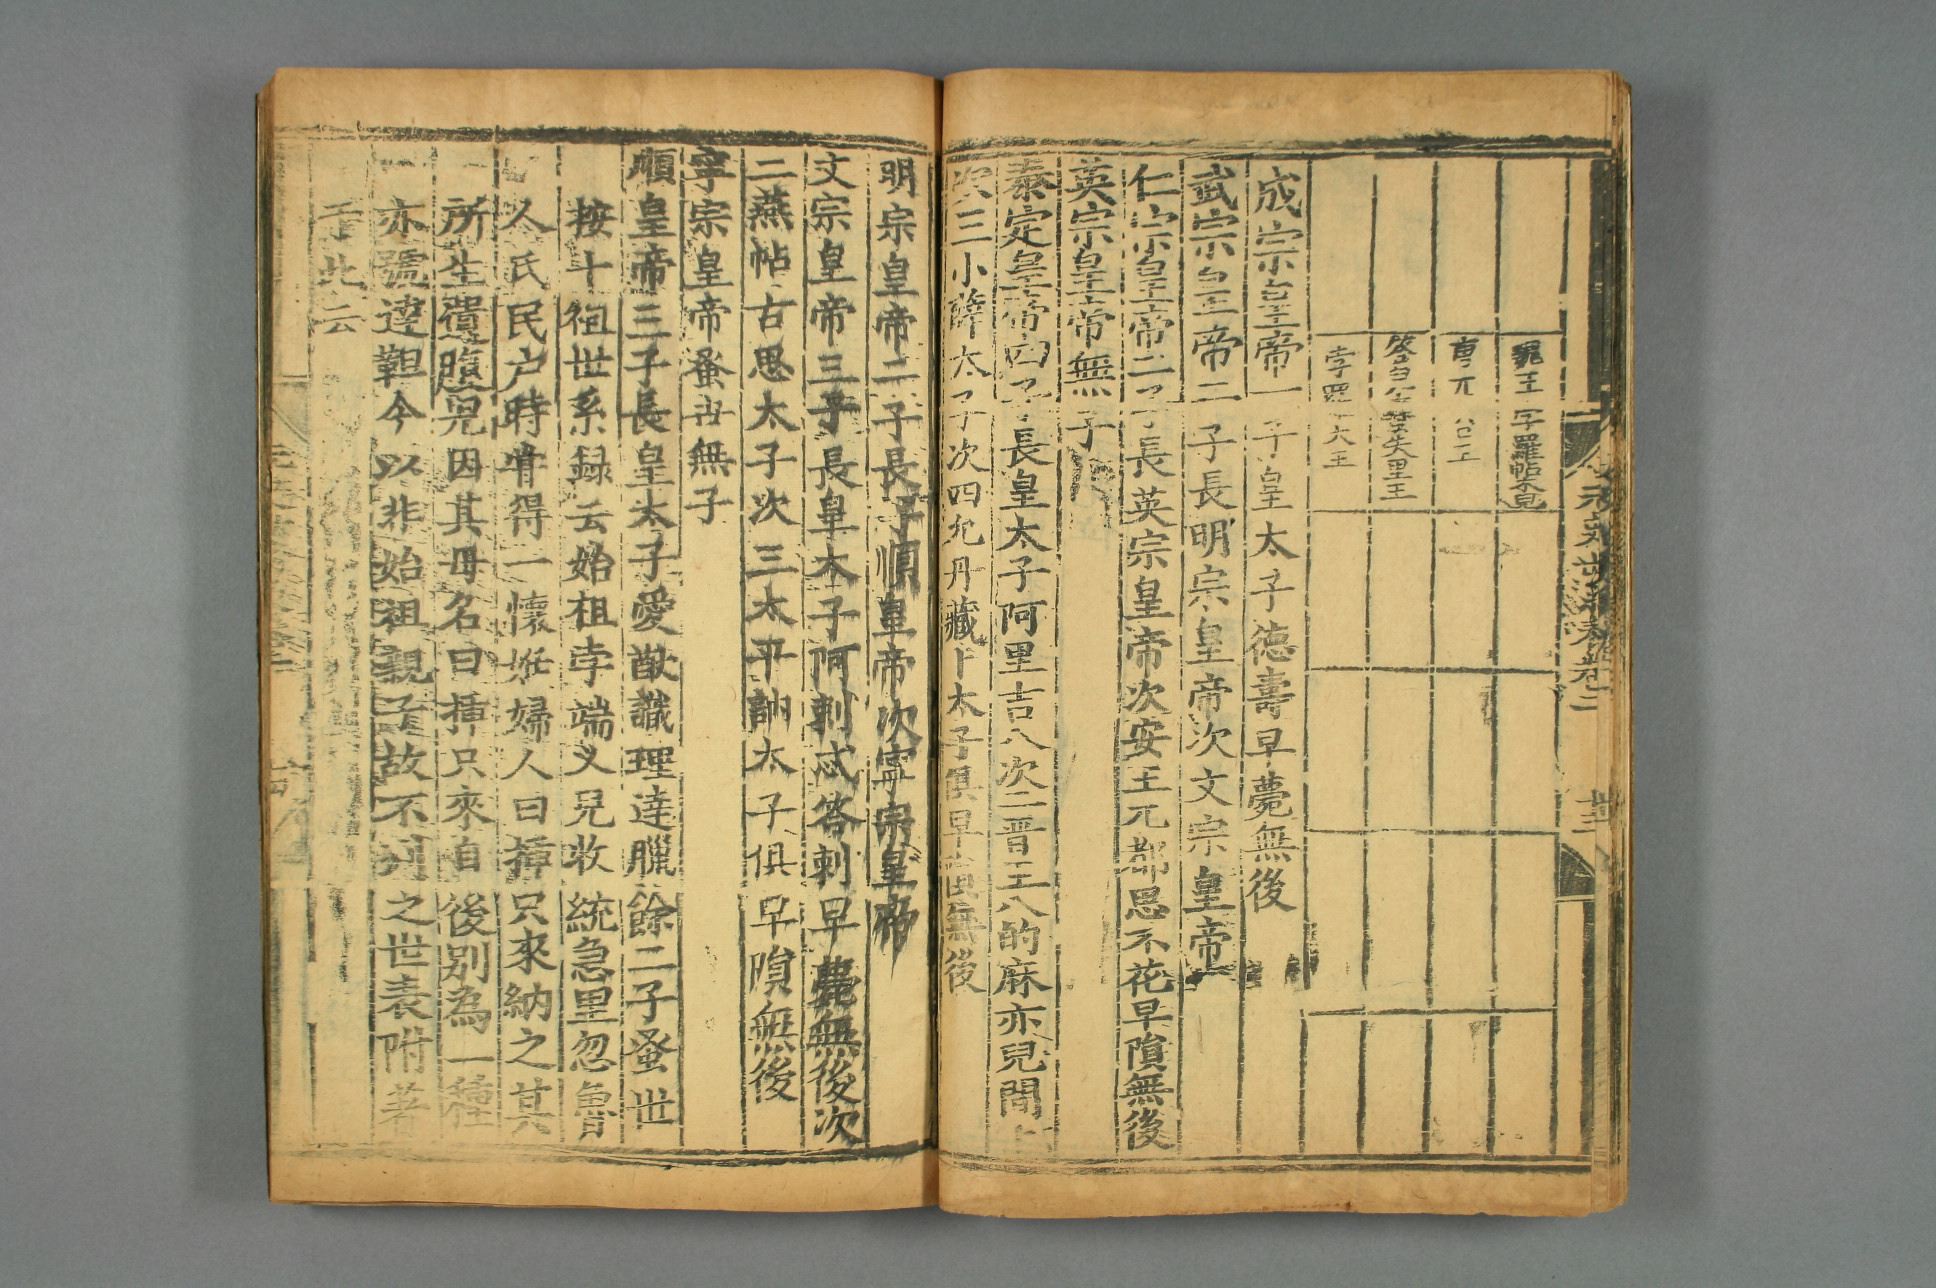 魏王 孛羅帖木兒
孛羅大王
成宗皇帝一子皇太子德壽早薨無後
武宗皇帝二子長明宗皇帝次文宗皇帝
仁宗皇帝二子長英宗皇帝次安王兀都思不花早隕無後
英宗皇帝無子
泰定皇帝四子長皇太子阿里吉八次二晋王八的麻亦兒間卜
次三小薛太子次四允丹藏卜太子俱早隕無後
明宗皇帝二子長子順皇帝次寧宗皇帝
文宗皇帝三子長皇太子阿剌忒答剌早薨無後次
二燕帖古思太子次三太平訥太子俱早隕無後
寧宗皇帝蚤世無子
順皇帝三子長皇太子愛猷識理達臘餘二子蚤世
按十祖世系録云始祖孛端义兒收統急里忽魯
人氏民户時甞得一懷妊婦人曰揷只來納之其
所生遺腹兒因其母名曰揷只來自後别為一種
亦號達靼今以非始祖親子故不列之世表附著
于此云